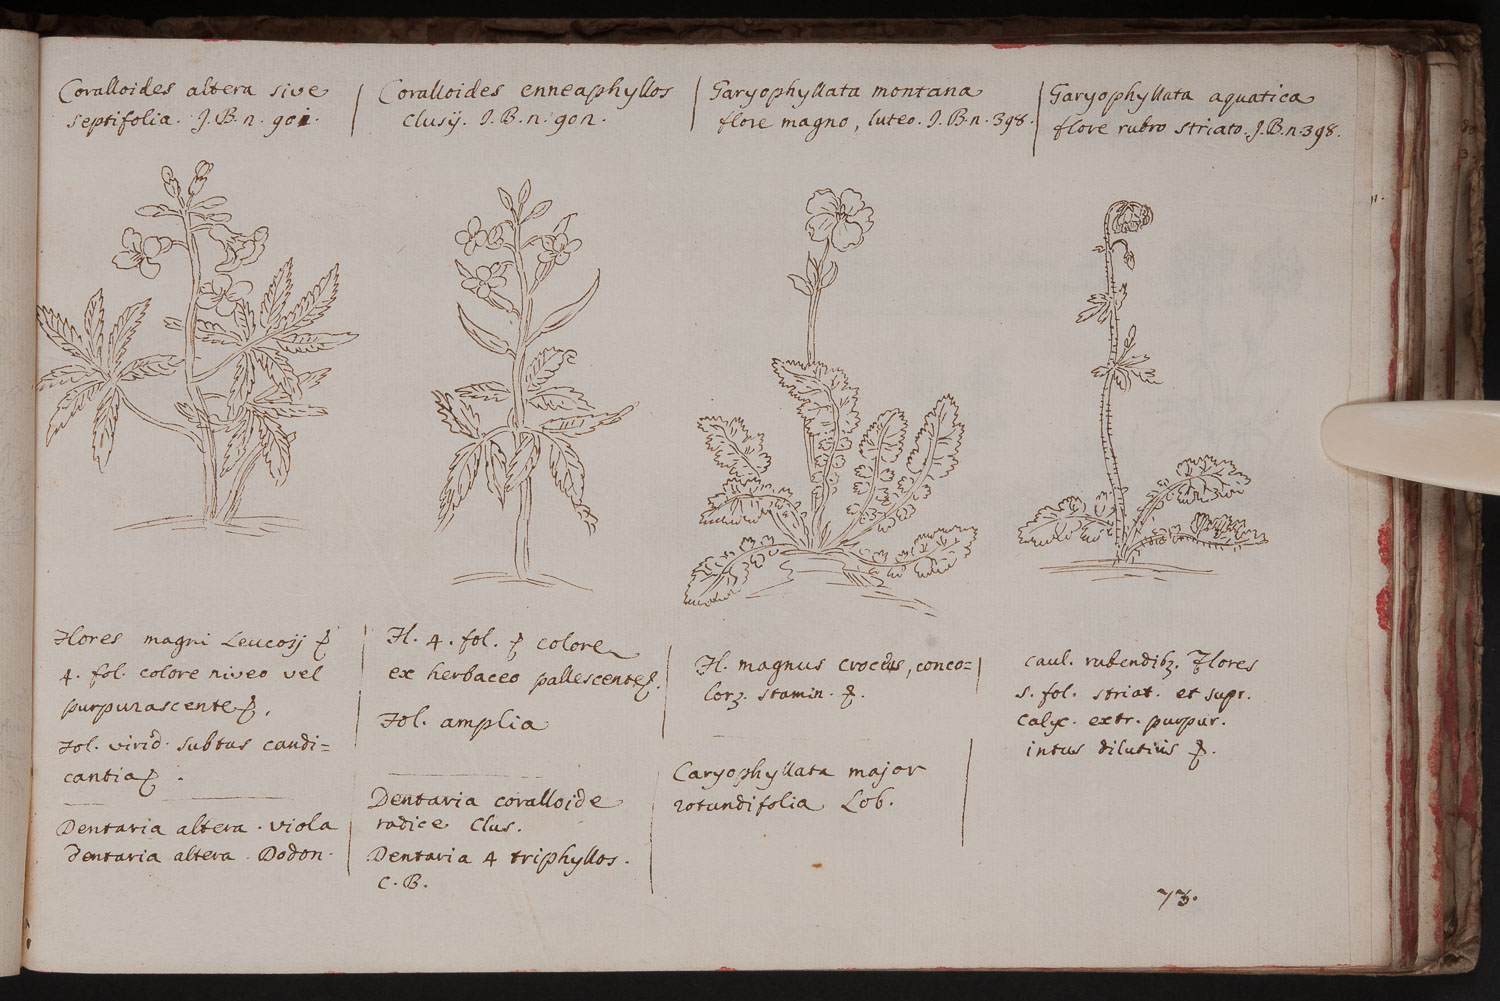 Coralloides altera sive
septifolia. J.B. n. 901.
Coralloides enneaphyllos
Clusÿ. J.B. n. 90n.
Garyophyllata montana
flore magno, luteo. J.B. n. 398.
Garyophyllata aquatica
flore rubro striato. J.B. n. 398.
Flores magni Leucoij
4. fol. colore niveo vel
purpurascente.
Fol. virid. subtus candi=
cantia.
Dentaria altera. viola
dentaria altera. Dodon.
Fl. 4. fol. colore
ex herbaceo pallescente.
Fol. amplia
Dentaria coralloide
radice Clus.
Dentaria 4 triphyllos.
C.B.
Fl. magnus croceus, conco=
lorz. stamin.
Caryophyllata major
rotundifolia Lob.
caul. rubendibz. Flores
5. fol. striat. et supr.
Calyc. extr. purpur.
intus dilutius.
73.